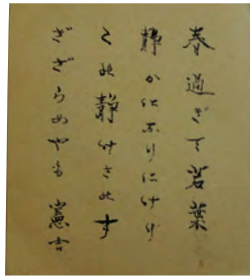 春過ぎて若葉
静かになりにけり
この静けさのす
ぎざらめやも 憲吉